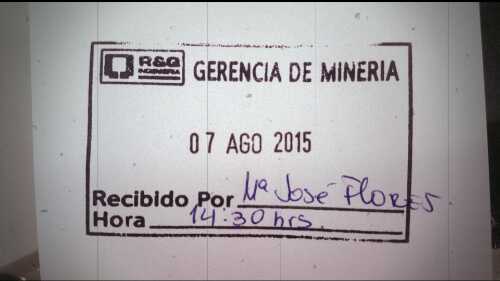 R&Q
INGENIERIA
GERENCIA DE MINERIA
07 AGO 2015
Recibido Por Mª JOSÉ FLORES
Hora 14:30 hrs.